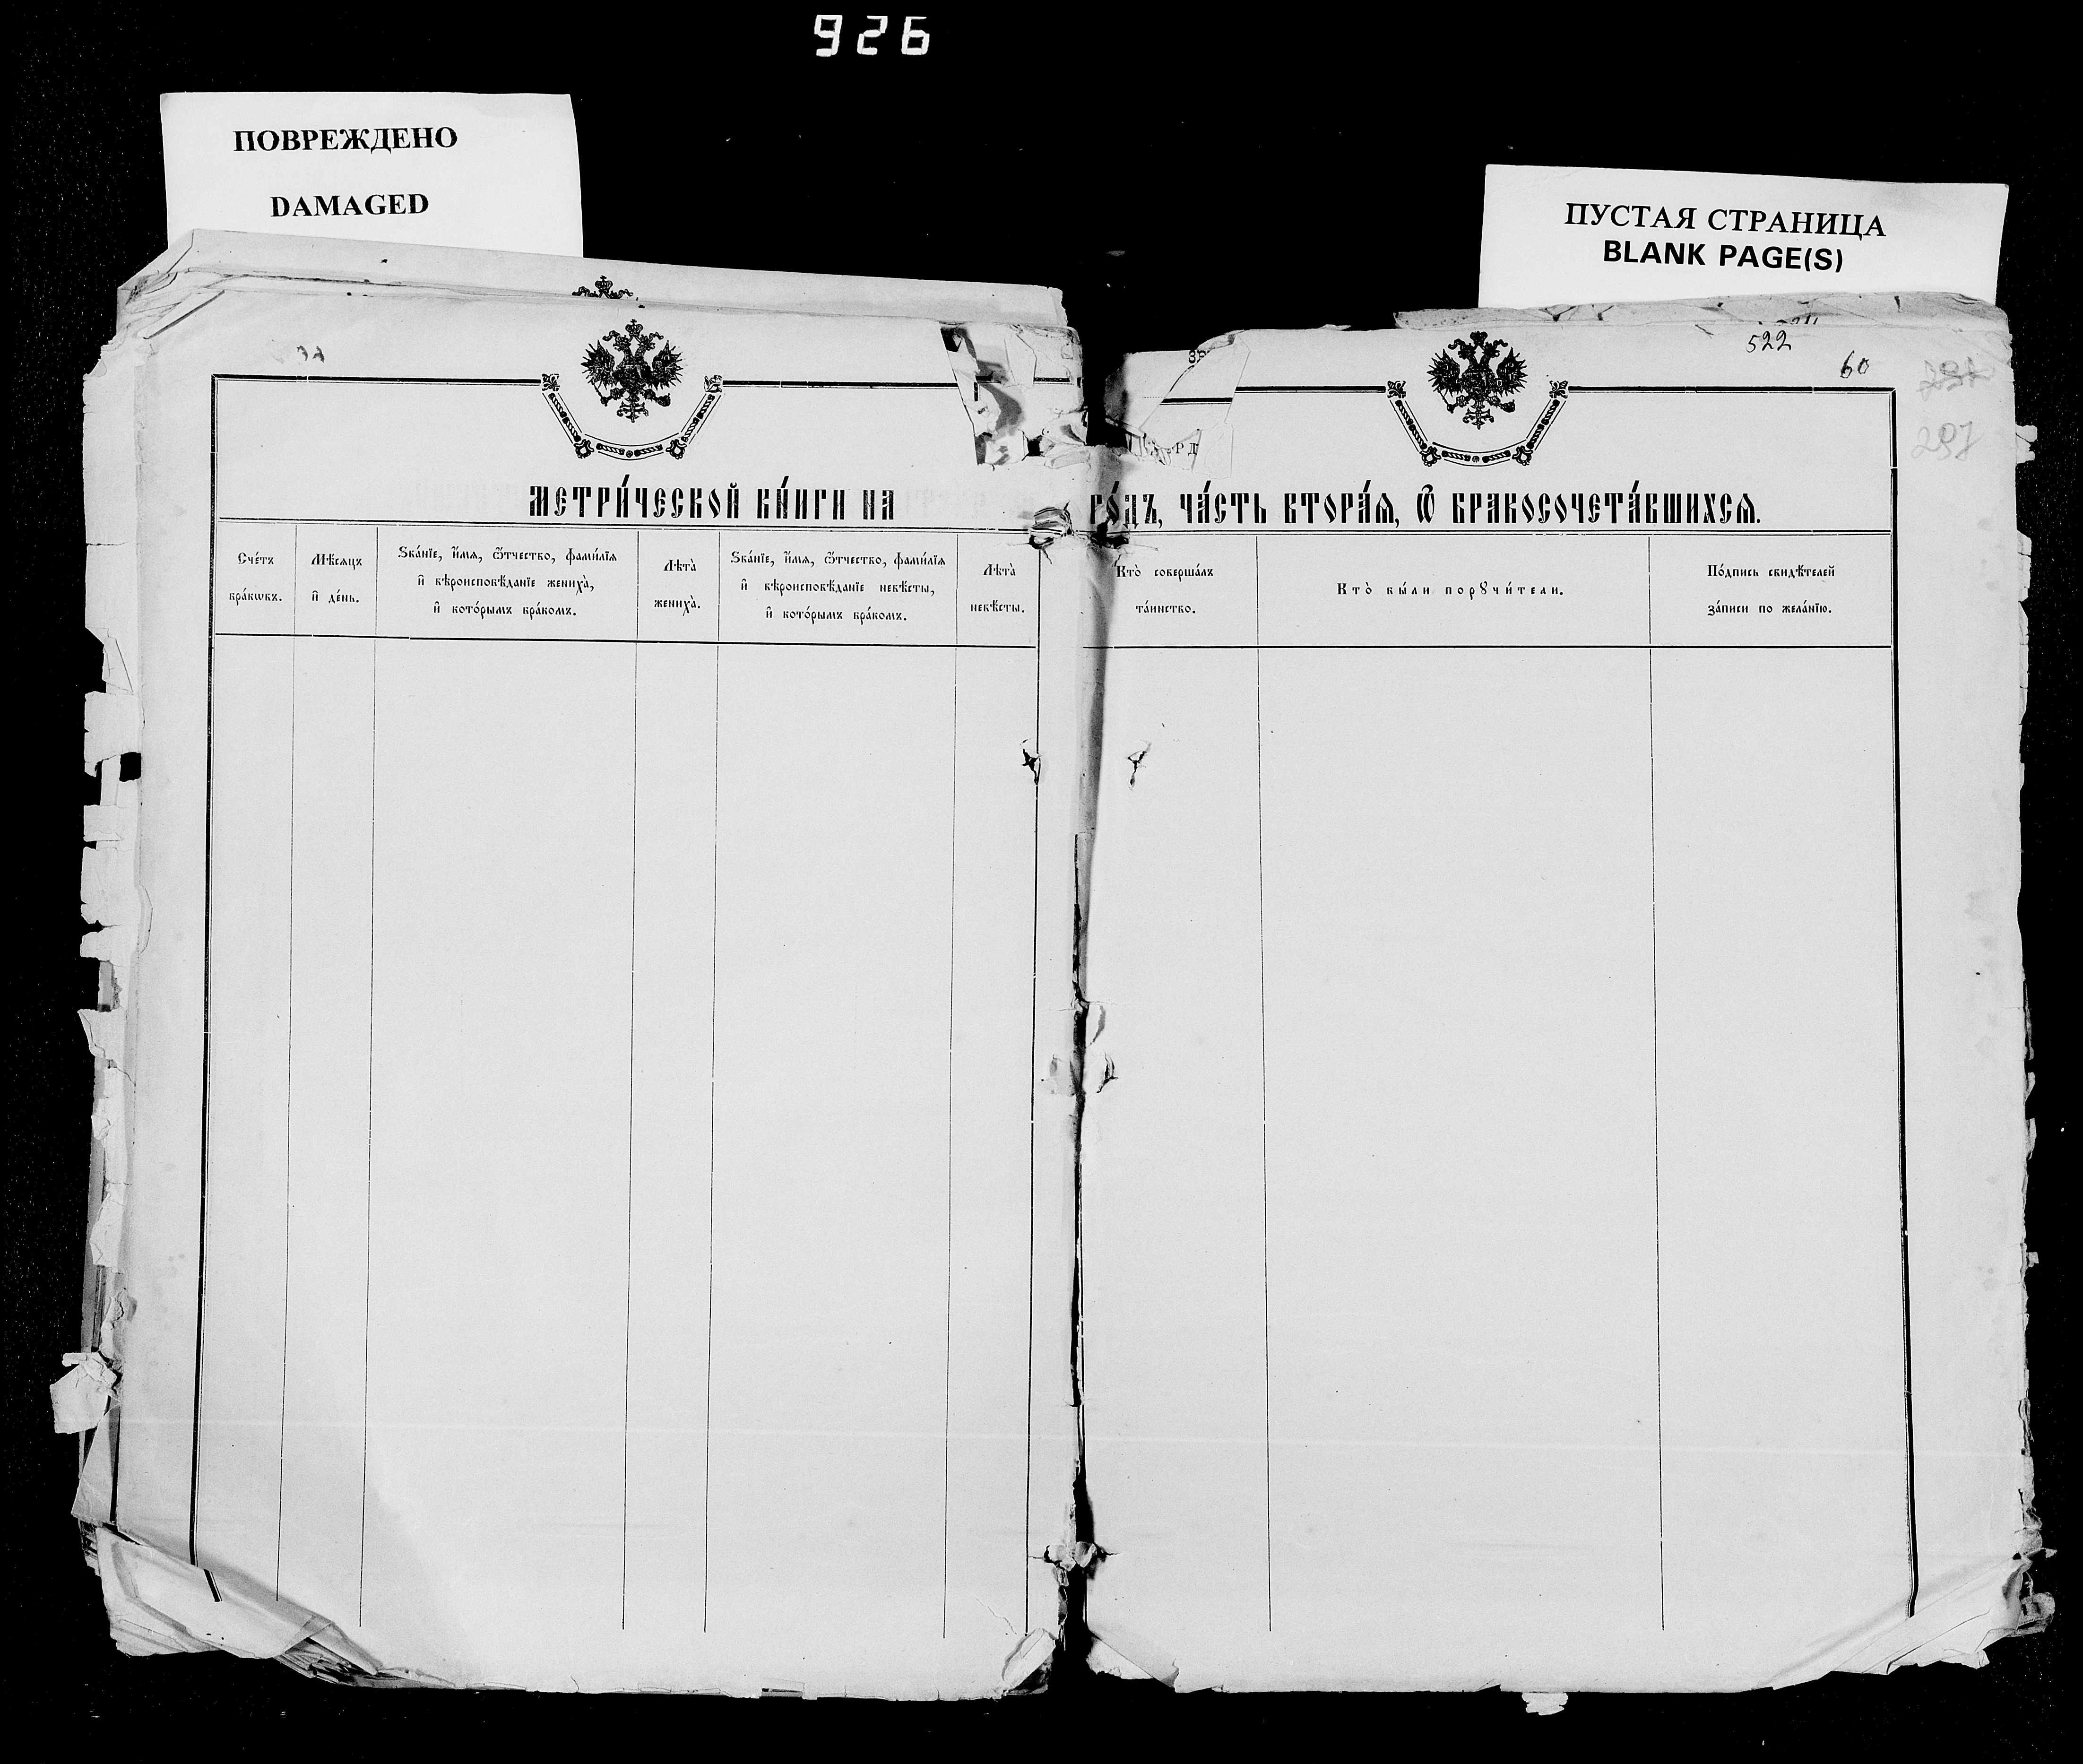 926
ПОВРЕЖДЕНО
DAMAGED
ПУСТАЯ СТРАНИЦА
BLANK PAGE(S)
522
60
297
МЕТРИ́ЧЕСКОЙ КНИ́ГИ НА
ГО́ДЪ, ЧА́СТЬ ВТОРА́Я, Ѿ БРАКОСОЧЕТА́ВШИХСЯ.
Сче́тъ
бра́кѡвъ.
Мѣ́сяцъ
и҆ де́нь.
Ѕва́нїе, и҆́мя, ѻ҆́тчество, фами́лїя
и҆ вѣроисповѣ́данїе жениха̀,
и҆ кото́рымъ бра́комъ.
Лѣта̀
жениха̀.
Ѕва́нїе, и҆́мя, ѻ҆́тчество, фами́лїя
и҆ вѣроисповѣ́данїе невѣ́сты,
и҆ кото́рымъ бра́комъ.
Лѣта̀
невѣ́сты.
Кто̀ соверша́лъ
та́инство.
Кто̀ бы́ли порꙋчи́тели.
По́дпись свидѣ́телей
за́писи по жела́нїю.